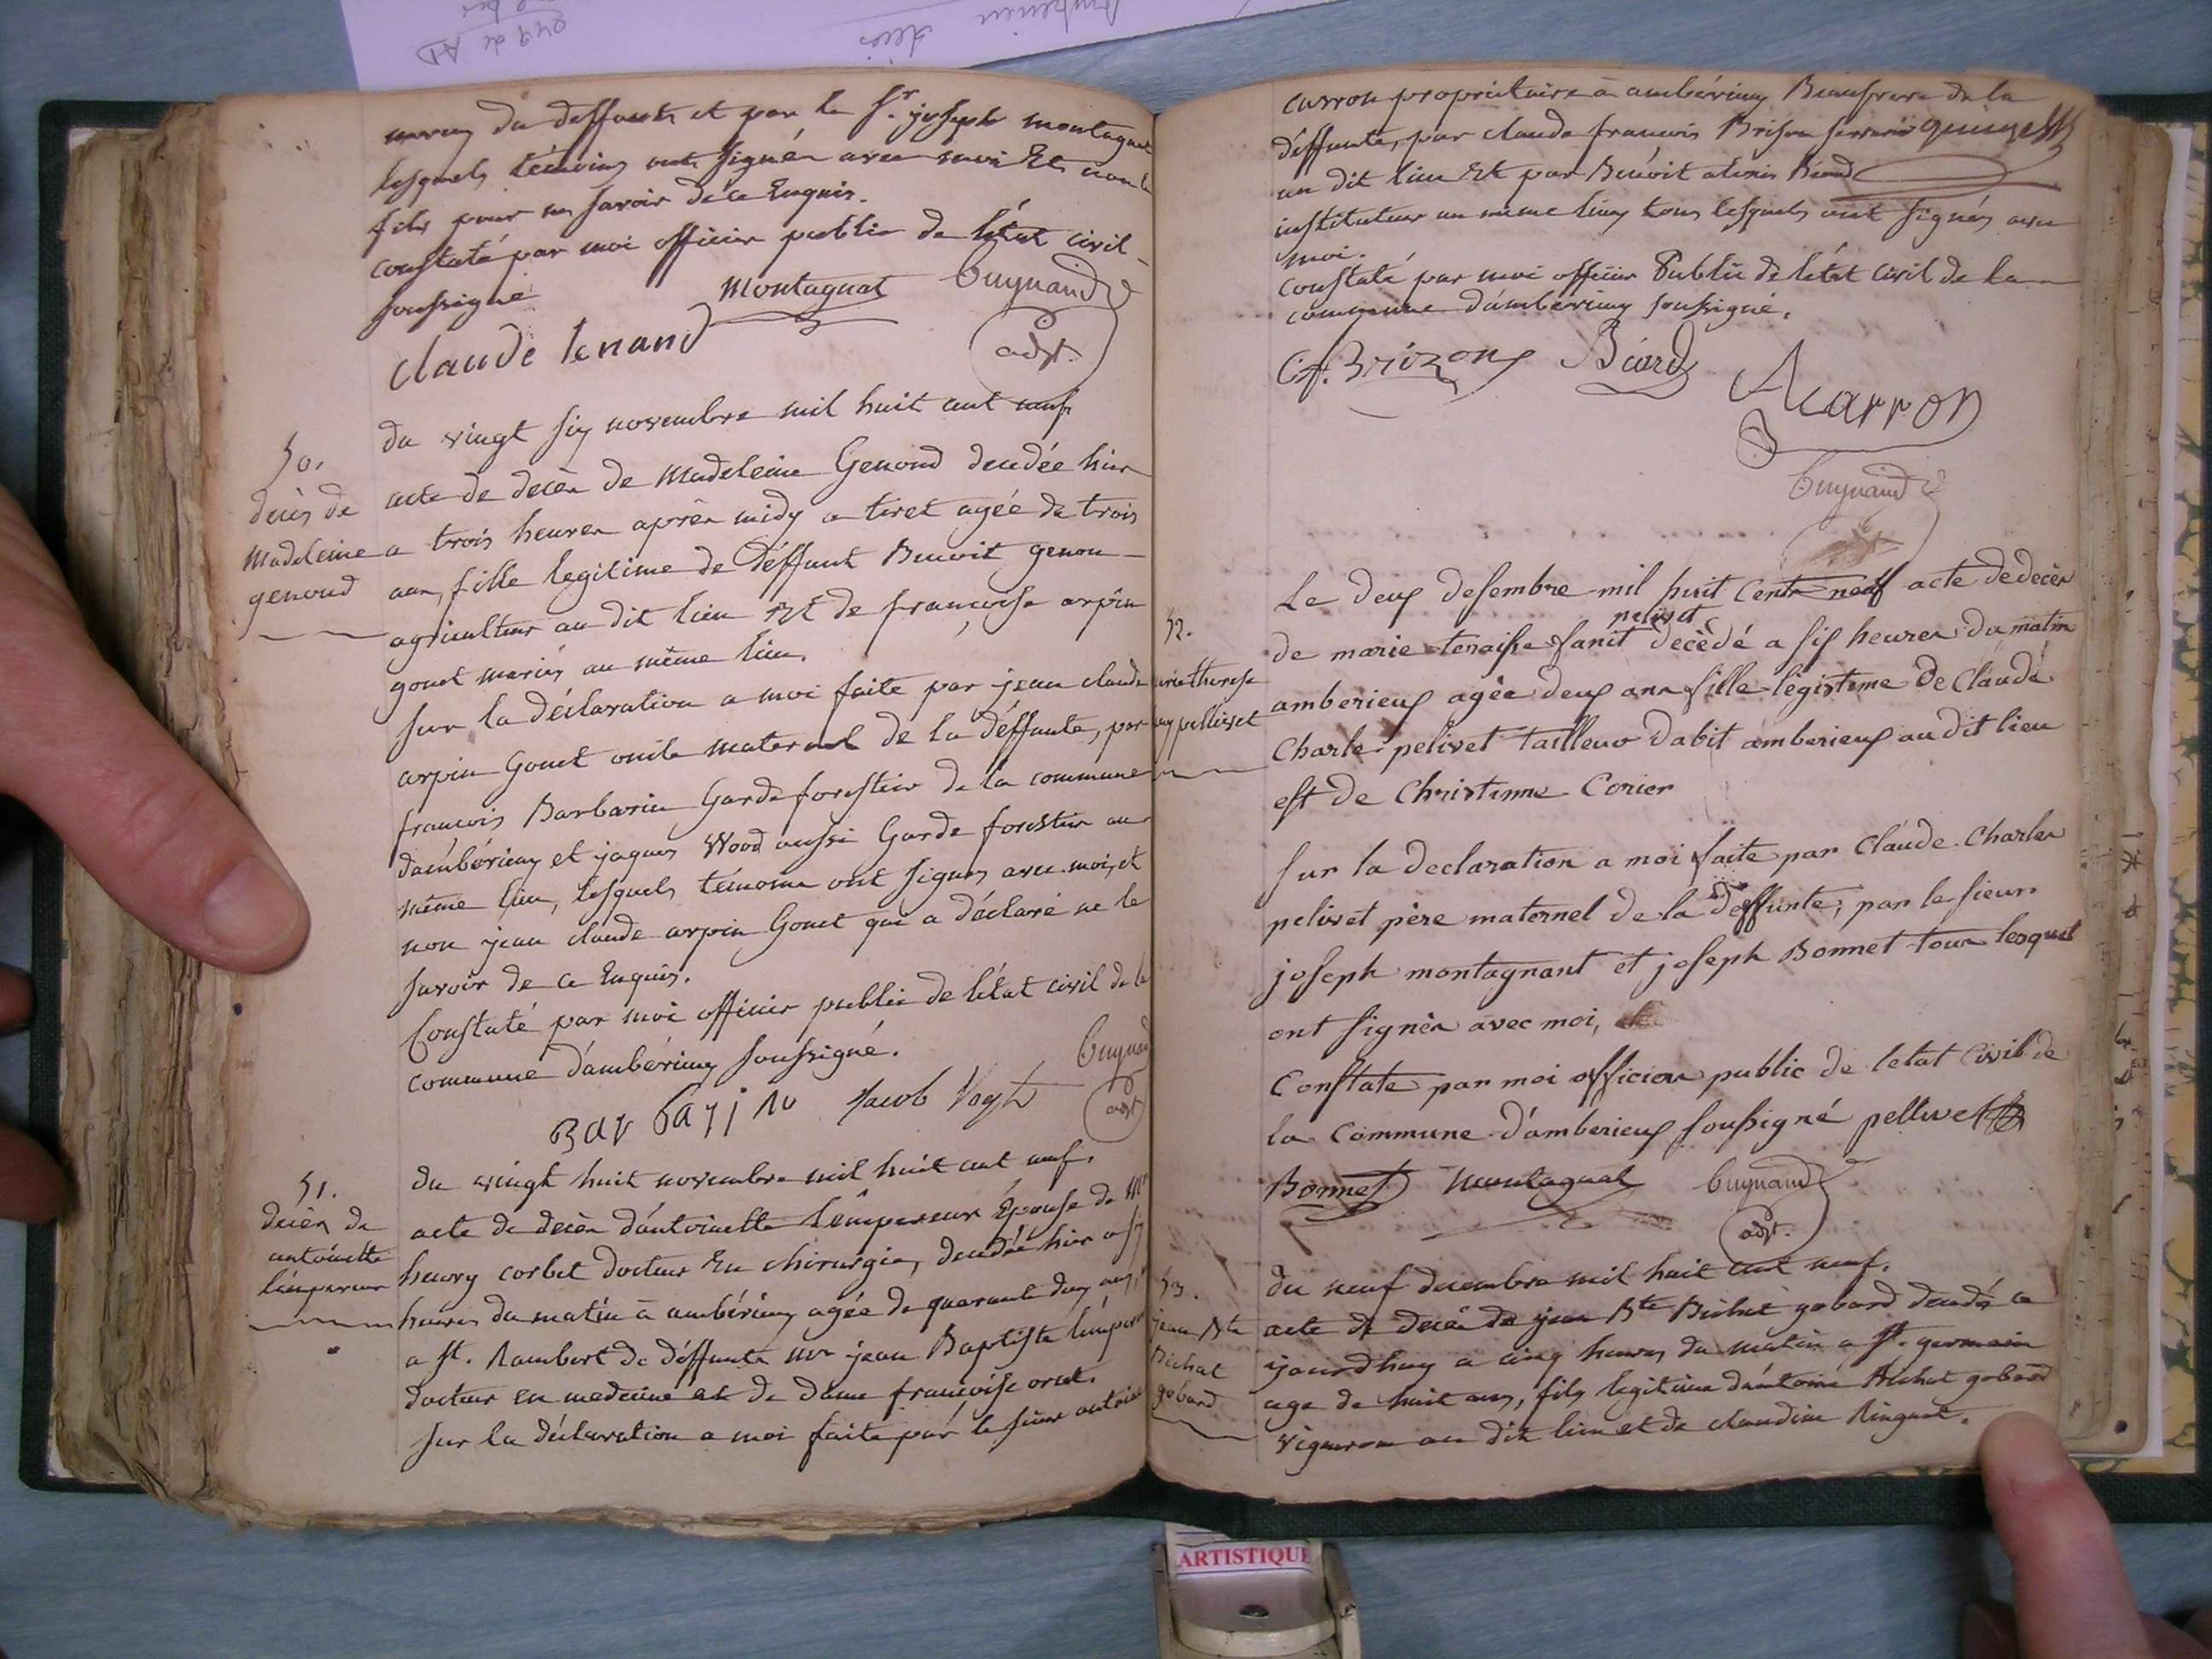 du deffunt et par le Sr. joseph montagnat
lesquels témoins ont signés avec moi Et non le
fils pour ne savoir de ce Enquis.
constaté par moi officier public de l'état civil
soussigné
montagnat Guynand
adjt.
claude tenand
50.
décès de
Madeleine
genoud
du vingt six novembre mil huit cent neuf
acte de décès de Madeleine Genoud decedée hier
a trois heures après midy a tiret agée de trois
ans, fille legitime de déffunt Benoit genou
agriculteur au dit lieu Et de françoise arpin
gonet mariés au même lieu.
sur la déclaration a moi faite par jean claude
arpin Gonet oncle maternel de la déffunte, par
françois Barbarin Garde forestier de la commune
d'ambérieux et jaques Wood aussi Garde forestier au
même lieu, lesquels témoins ont signés avec moi, et
non jean claude arpin Gonet qui a déclaré ne le
savoir de ce Enquis.
Constaté par moi officier public de l'état civil de la
commune d'ambérieux soussigné.
Guynand
adjt
Jacob Vogt
51.
décès de
antoinette
l'empereur
du vingt huit novembre mil huit cent neuf.
acte de décès d'antoinette l'empereur Épouse de Mr
henry corbet docteur En chirurgie, decedée hier a six
heures du matin à ambérieux agée de quarante deux ans,
a St. Rambert de déffunts Mr jean Baptiste l'empereur
docteur en medecine et de dame françoise orset.
sur la déclaration a moi faite par le sieur antoine
carron propriétaire à ambérieux Beaufrere de la
déffunte, par claude françois Brison serrurier
au dit lieu Et par Benoit alexis Béard
instituteur au meme lieu tous lesquels ont signés avec
moi.
constaté par moi officier Public de l'état civil de la
commune d'ambérieux soussigné.
C.f. Brizon Béard
Acarron
Guynand
52.
marie therese
pellivet
Le deux desembre mil huit Cent neuf acte de decès
pelivet
de marie teraise fanit decédé a six heures du matin
amberieux agée deux ans fille legistime De Claude
Charle pelivet tailleur dabit amberieux au dit lieu
est de Christinne Corier
sur la declaration a moi faite par Claude Charles
pelivet père maternel de la deffunte; par le sieur
joseph montagnant et joseph Bonnet tous lesquel
ont signés avec moi,
Constate par moi officier public de letat Civil de
la Commune d'amberieux soussigné pellivet
Bonnet montagnat Guynand
adjt.
53.
jean Bte
Bichat
gobard
du neuf decembre mil huit cent neuf.
acte de décès de jean Bte Bichat gobard decedé ce
jourdhuy a cinq heures du matin a St. germain
age de huit ans, fils legitime d'antoine Bichat gobard
vigneron au dit lieu et de claudine Ringuet.
ARTISTIQUE